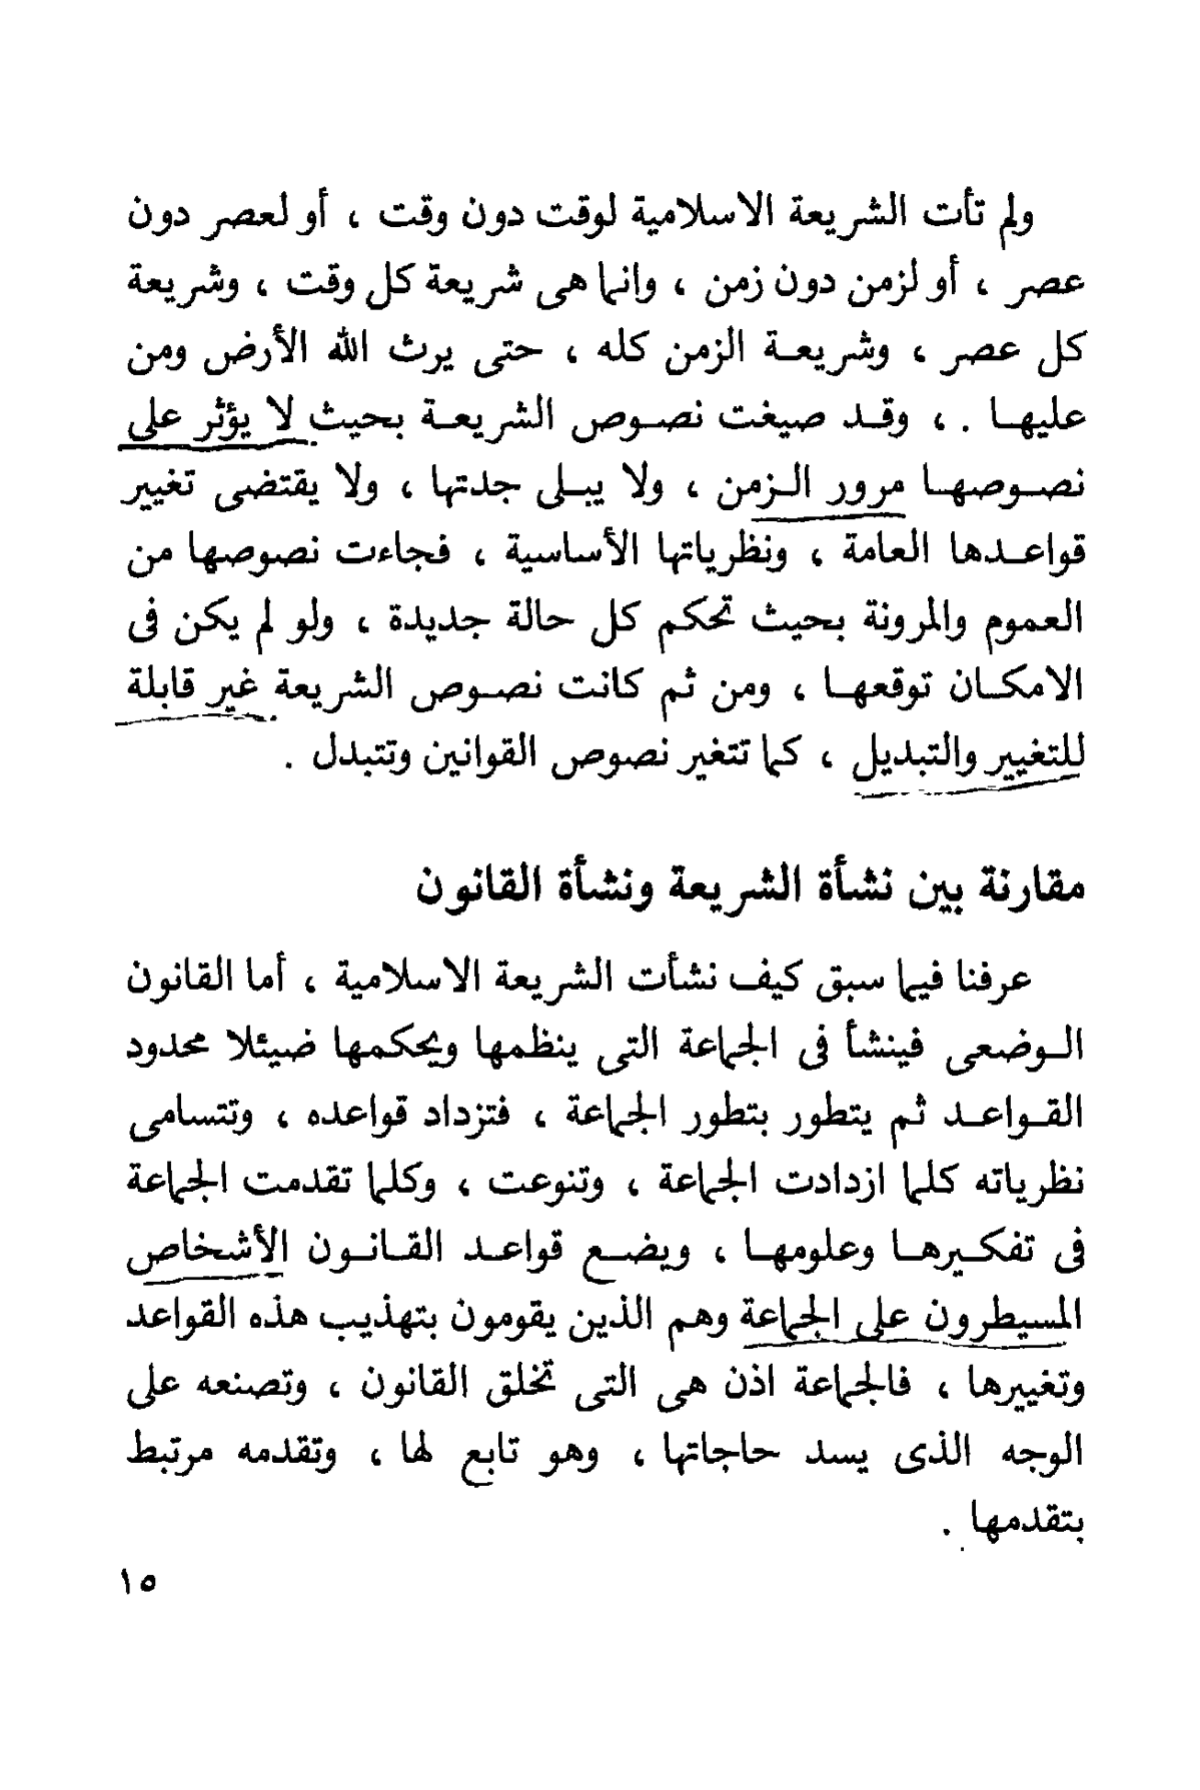 ولم تأت الشريعة الاسلامية لوقت دون وقت ، أو لعصر دون
عصر ، أو لزمن دون زمن ، وانما هى شريعة كل وقت ، وشريعة
كل عصر ، وشريعة الزمن كله ، حتى يرث الله الأرض ومن
عليها . ، وقد صيغت نصوص الشريعة بحيث لا يؤثر على
نصوصها مرور الزمن ، ولا يبلى جدتها ، ولا يقتضى تغيير
قواعدها العامة ، ونظرياتها الأساسية ، فجاءت نصوصها من
العموم والمرونة بحيث تحكم كل حالة جديدة ، ولو لم يكن فى
الامكان توقعها ، ومن ثم كانت نصوص الشريعة غير قابلة
للتغيير والتبديل ، كما تتغير نصوص القوانين وتتبدل .
مقارنة بين نشأة الشريعة ونشأة القانون
عرفنا فيما سبق كيف نشأت الشريعة الاسلامية ، أما القانون
الوضعى فينشأ فى الجماعة التى ينظمها ويحكمها ضيئلا محدود
القواعد ثم يتطور بتطور الجماعة ، فتزداد قواعده ، وتتسامى
نظرياته كلما ازدادت الجماعة ، وتنوعت ، وكلما تقدمت الجماعة
فى تفكيرها وعلومها ، ويضع قواعد القانون الأشخاص
المسيطرون على الجماعة وهم الذين يقومون بتهذيب هذه القواعد
وتغييرها ، فالجماعة اذن هى التى تخلق القانون ، وتصنعه على
الوجه الذى يسد حاجاتها ، وهو تابع لها ، وتقدمه مرتبط
بتقدمها .
١٥